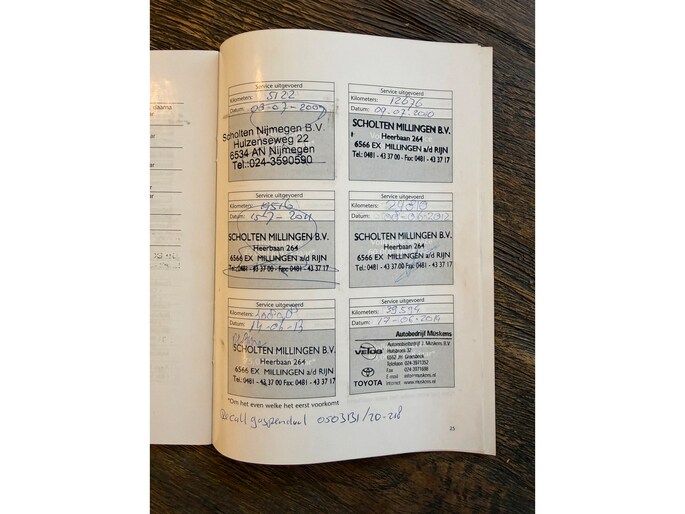 Service uitgevoerd
Kilometers: 5122
Datum: 03-07-2009
Scholten Nijmegen B.V.
Hulzenseweg 22
6534 AN Nijmegen
Tel.:024-3590590
Service uitgevoerd
Kilometers: 12676
Datum: 09-07-2010
SCHOLTEN MILLINGEN B.V.
Heerbaan 264
6566 EX MILLINGEN a/d RIJN
Tel.: 0481 - 43 37 00 - Fax: 0481 - 43 37 17
Service uitgevoerd
Kilometers: 19516
Datum: 2011
SCHOLTEN MILLINGEN B.V.
Heerbaan 264
6566 EX MILLINGEN a/d RIJN
Tel.: 0481 - 43 37 00 - Fax: 0481 - 43 37 17
Service uitgevoerd
Kilometers:
Datum: 2012
SCHOLTEN MILLINGEN B.V.
Heerbaan 264
6566 EX MILLINGEN a/d RIJN
Tel.: 0481 - 43 37 00 Fax: 0481 - 43 37 17
Service uitgevoerd
Kilometers:
Datum: 14-06-13
SCHOLTEN MILLINGEN B.V.
Heerbaan 264
6566 EX MILLINGEN a/d RIJN
Tel.: 0481 - 43 37 00 Fax: 0481 - 43 37 17
Service uitgevoerd
Kilometers: 39.594
Datum: 17-06-2014
Autobedrijf Müskens
Automobielbedrijf J. Müskens, B.V.
Hulsbroek 37
6562 JH Groesbeek
Telefoon 024-3971352
Fax 024-3971698
E-mail info@muskens.nl
Internet www.muskens.nl
veloa
TOYOTA
*Om het even welke het eerst voorkomt
call gaspendaal 0503131/20-218
25